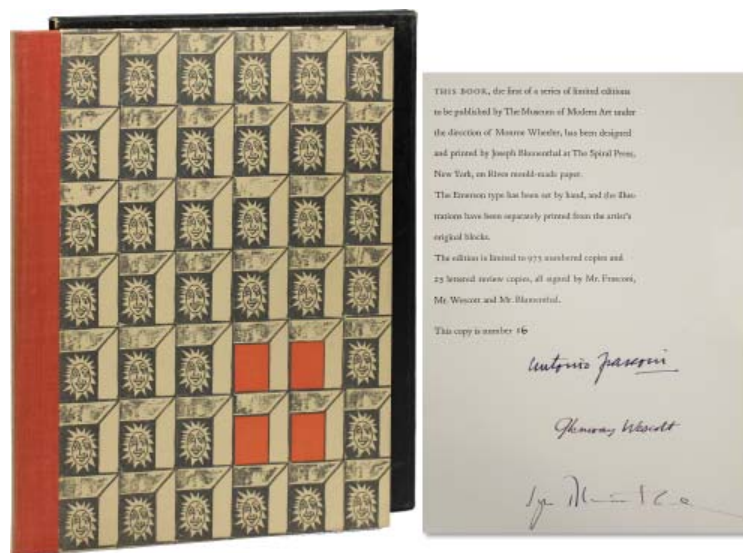 THIS BOOK, the first of a series of limited editions
to be published by The Museum of Modern Art under
the direction of Monroe Wheeler, has been designed
and printed by Joseph Blumenthal at The Spiral Press,
New York, on Rives mould-made paper.
The Emerson type has been set by hand, and the illus-
trations have been separately printed from the artist's
original blocks.
The edition is limited to 975 numbered copies and
25 lettered review copies, all signed by Mr. Frasconi,
Mr. Wescott and Mr. Blumenthal.
This copy is number 16
Antonio Frasconi
Glenway Wescott